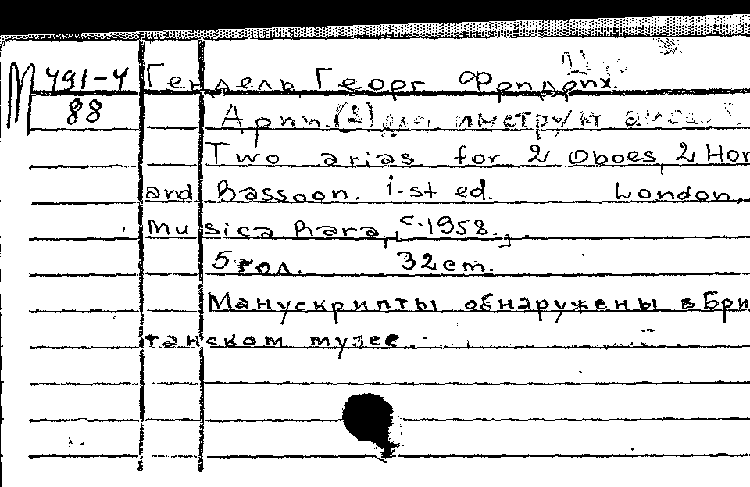 М 491-4 Гендель, Георг Фридрих
88 Арии (2) для инструм. анса
Two arias for 2 Oboes, 2 Hor
and Bassoon. i-st ed. London,
Musica Rara, c.1958.
5 гол. 32 cm.
Манускрипты обнаружены в Бри
танском музее.